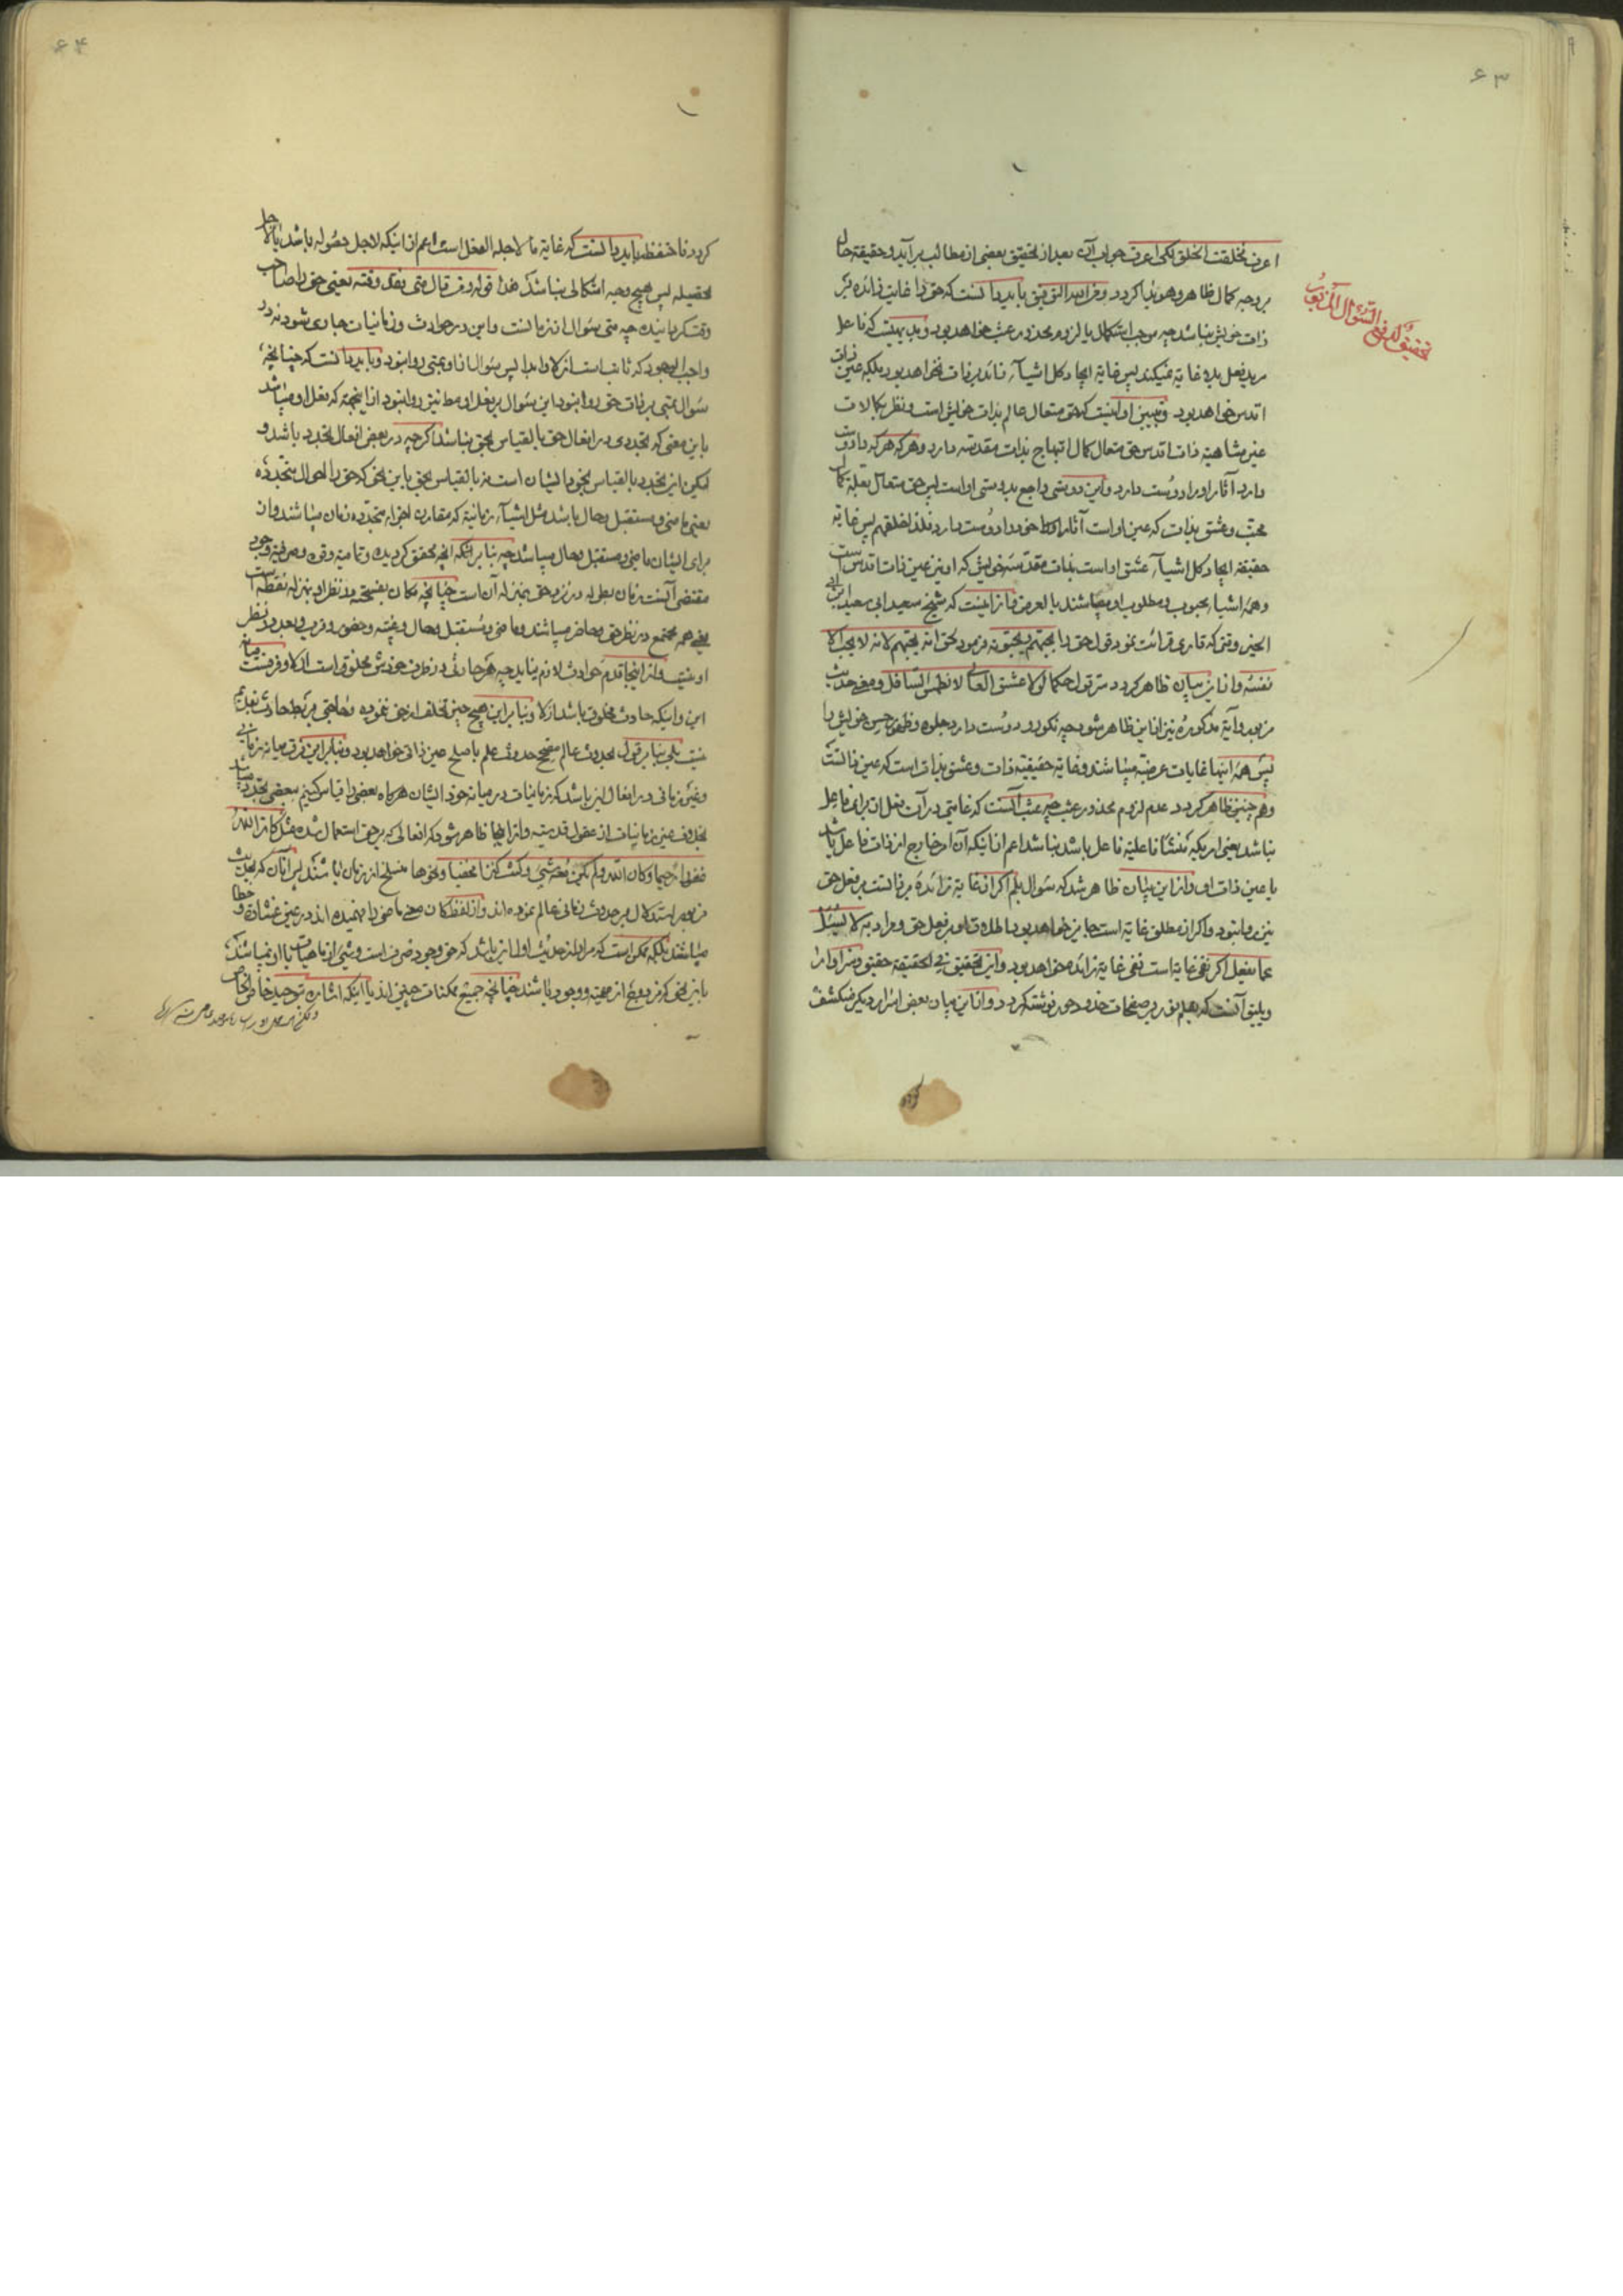 ۶۳
اعرف فخلقت الخلق لکی اعرف جواب آن بعد از تحقیق بعضی از مطالب بر آید و حقیقة حال
بر وجه کمال ظاهر و هویدا کردد و من الله التوفیق باید دانست که حق را غایت زائده بر
ذات خویش نباشد چه موجب استکمال یا لزوم محذور عبث خواهد بود و بدیهیست که فاعل
مرید فعل بدون غایة نمیکند پس غایة ایجاد کل اشیآء زائد بر ذات نخواهد بود بلکه عین ذات
اقدس خواهد بود و تبیین او اینست که حق متعال عالم بذات خویش است و نظر بکمالات
غیر متناهیة ذات اقدس حق متعال کمال ابتهاج بذات مقدسه دارد و هر که هر که را دوست
دارد آثار او را دوست دارد و این دوستی راجع بدوستی او است پس حق متعال بعلت کمال
محبت و عشق بذات که عین او است آثار خود را دوست دارد فلذا خلقهم پس غایة
حقیقة ایجاد کل اشیآء عشق او است بذات مقدسه خویش که او نیز عین ذات اقدس است
و همه اشیا محبوب و مطلوب او میباشند بالعرض و از اینست که شیخ سعید ابی سعید ابن ابی
الخیر وقتی که قاری قرائت نمود قول حق را یحبهم و یحبونه فرمود بحق انه یحبهم لانه لا یحب الا
نفسه و از این بیان ظاهر کردد سر قول حکما لولا عشق العالی لانطمس السافل و معنی حدیث
مزبور و آیة مذکوره نیز از این ظاهر شود چه نکورو دوست دارد جلوه و ظهور حسن خویش را
پس همه اینها غایات عرضیه میباشند و غایة حقیقیة ذات و عشق بذات است که عین ذاتست
و هم چنین ظاهر کردد عدم لزوم محذور عبث چه عبث آنست که غایتی در آن فعل از برای فاعل
نباشد یعنی امریکه منشأ فاعلیة فاعل باشد نباشد اعم از اینکه آن امر خارج از ذات فاعل باشد
یا عین ذات او و از این بیان ظاهر شد که سؤال بلم اکر از غایة زائده بر ذاتست بر فعل حق
نیز روا نبود و اکر از مطلق غایة است جایز خواهد بود اطلاق او بر فعل حق و مراد به لا یسئل
عما یفعل اکر نفی غایة است نفی غایة زائده خواهد بود و این تحقیق فی الحقیقة حقیق و سزاوار
و یلیق آنست که بقلم نور بر صفحات خدود حور نوشته کردد و از این بیان بعضی اسرار دیکر منکشف
تحقیق لدفع السؤال المزبور
۶۴
کردد فاحتفظ باید دانست که غایة ما لاجله الفعل است اعم از اینکه لاجل حصوله باشد یا لاجل
تحصیله پس هیچ وجه اشکالی نباشد هذا قوله و من قال متی فقد وقته یعنی حق را صاحب
وقت کردانیده چه متی سؤال از زمانست و این در حوادث و زمانیات جاری شود نه در
واجب الوجود که ثابت است ازلا و ابدا پس سؤال از او بمتی روا نبود و باید دانست که چنانچه
سؤال بمتی بر ذات حق روا نبود این سؤال بر فعل او مط نیز روا نبود از اینجهة که فعل او میباشد
باین معنی که تجددی در افعال حق بالقیاس بحق نباشد اکرچه در بعض افعال تجدد باشد و
لیکن این تجدد بالقیاس بخود ایشان است نه بالقیاس بحق باین نحو که حق را احوال متجدده
یعنی ماضی و مستقبل و حال باشد مثل اشیآء زمانیة که مقارن اجزاء متجدده زمان میباشند و از
برای ایشان ماضی و مستقبل و حال میباشد چه بنا بر آنکه آنچه محقق کردیده و تمامیة و قوه و صرفیة وجود
مقتضی آنست زمان بطوله در نزد حق بمنزله آن است چنانچه مکان بفسحته در نظر او بمنزله نقطه است
یعنی همه مجتمع در نظر حق و حاضر میباشند و ماضی و مستقبل و حال و غیبة و حضور و قرب و بعد در نظر
او نیست و از اینجا قدم حوادث لازم نیاید چه هر حادثی در ظرف خودش مخلوق است ازلا و فرقست میانه
این و اینکه حادث مخلوق باشد ازلا و بنا بر این هیچ چیز تخلف از حق ننموده و حاجتی بربط حادث بقدیم
نیست بلی بنا بر قول بحدوث عالم مصحح حدوث علم باصلح عین ذاتی خواهد بود و بنا بر این فرق میانه زمانی
و غیر زمانی در افعال این باشد که زمانیات در میانه خود ایشان هر کاه بعضی را قیاس کنیم ببعضی تجدد میباشد
بخلاف غیر زمانیات از عقول قدسیه و از اینجا ظاهر شود که افعالی که بر حق استعمال شده مثل کان الله
غفورا رحیما و کان الله و لم یکن معه شیء و کنت کنزا مخفیا و نحوها منسلخ از زمان باشند پس آنان که بحدیث
مزبور استدلال بر حدوث زمانی عالم نموده اند و از لفظ کان معنی ماضی را فهمیده اند در عین غشاوة و خطا
میباشند بلکه ممکن است که مراد از حدیث اول این باشد که حق وجود صرف است و شیئی از ماهیات با او نمیباشند
باین نحو که مزدوج از مهیة و وجود باشد چنانچه جمیع ممکنات چنین اند یا اینکه اشاره بتوحید خاص الخاص